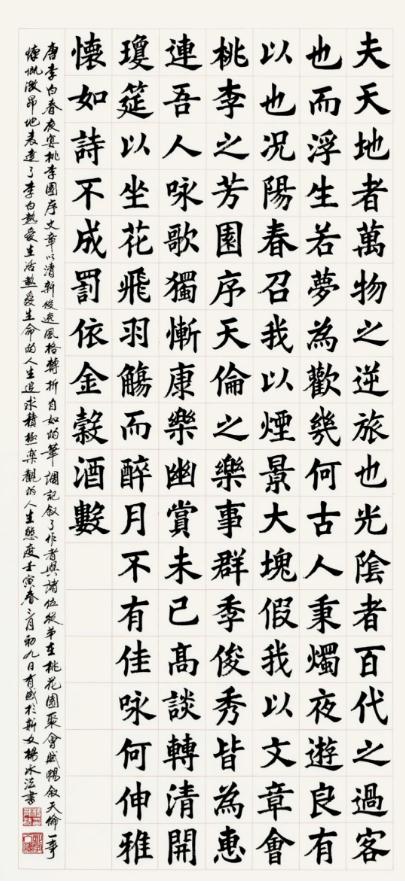 夫天地者萬物之逆旅也光陰者百代之過客
也而浮生若夢為歡幾何古人秉燭夜遊良有
以也况陽春召我以煙景大塊假我以文章會
桃李之芳園序天倫之樂事群季俊秀皆為惠
連吾人咏歌獨慚康樂幽賞未已高談轉清開
瓊筵以坐花飛羽觴而醉月不有佳咏何伸雅
懷如詩不成罰依金穀酒數
唐李白春夜宴桃李園序文章以清新俊逸風格轉折自如的筆調記叙了作者與諸位從弟在桃花園聚會賦詩叙天倫一事
慷慨激昂地表達了李白熱愛生活熱愛生命的人生追求積極樂觀的人生態度壬寅春月初九日有感於新書